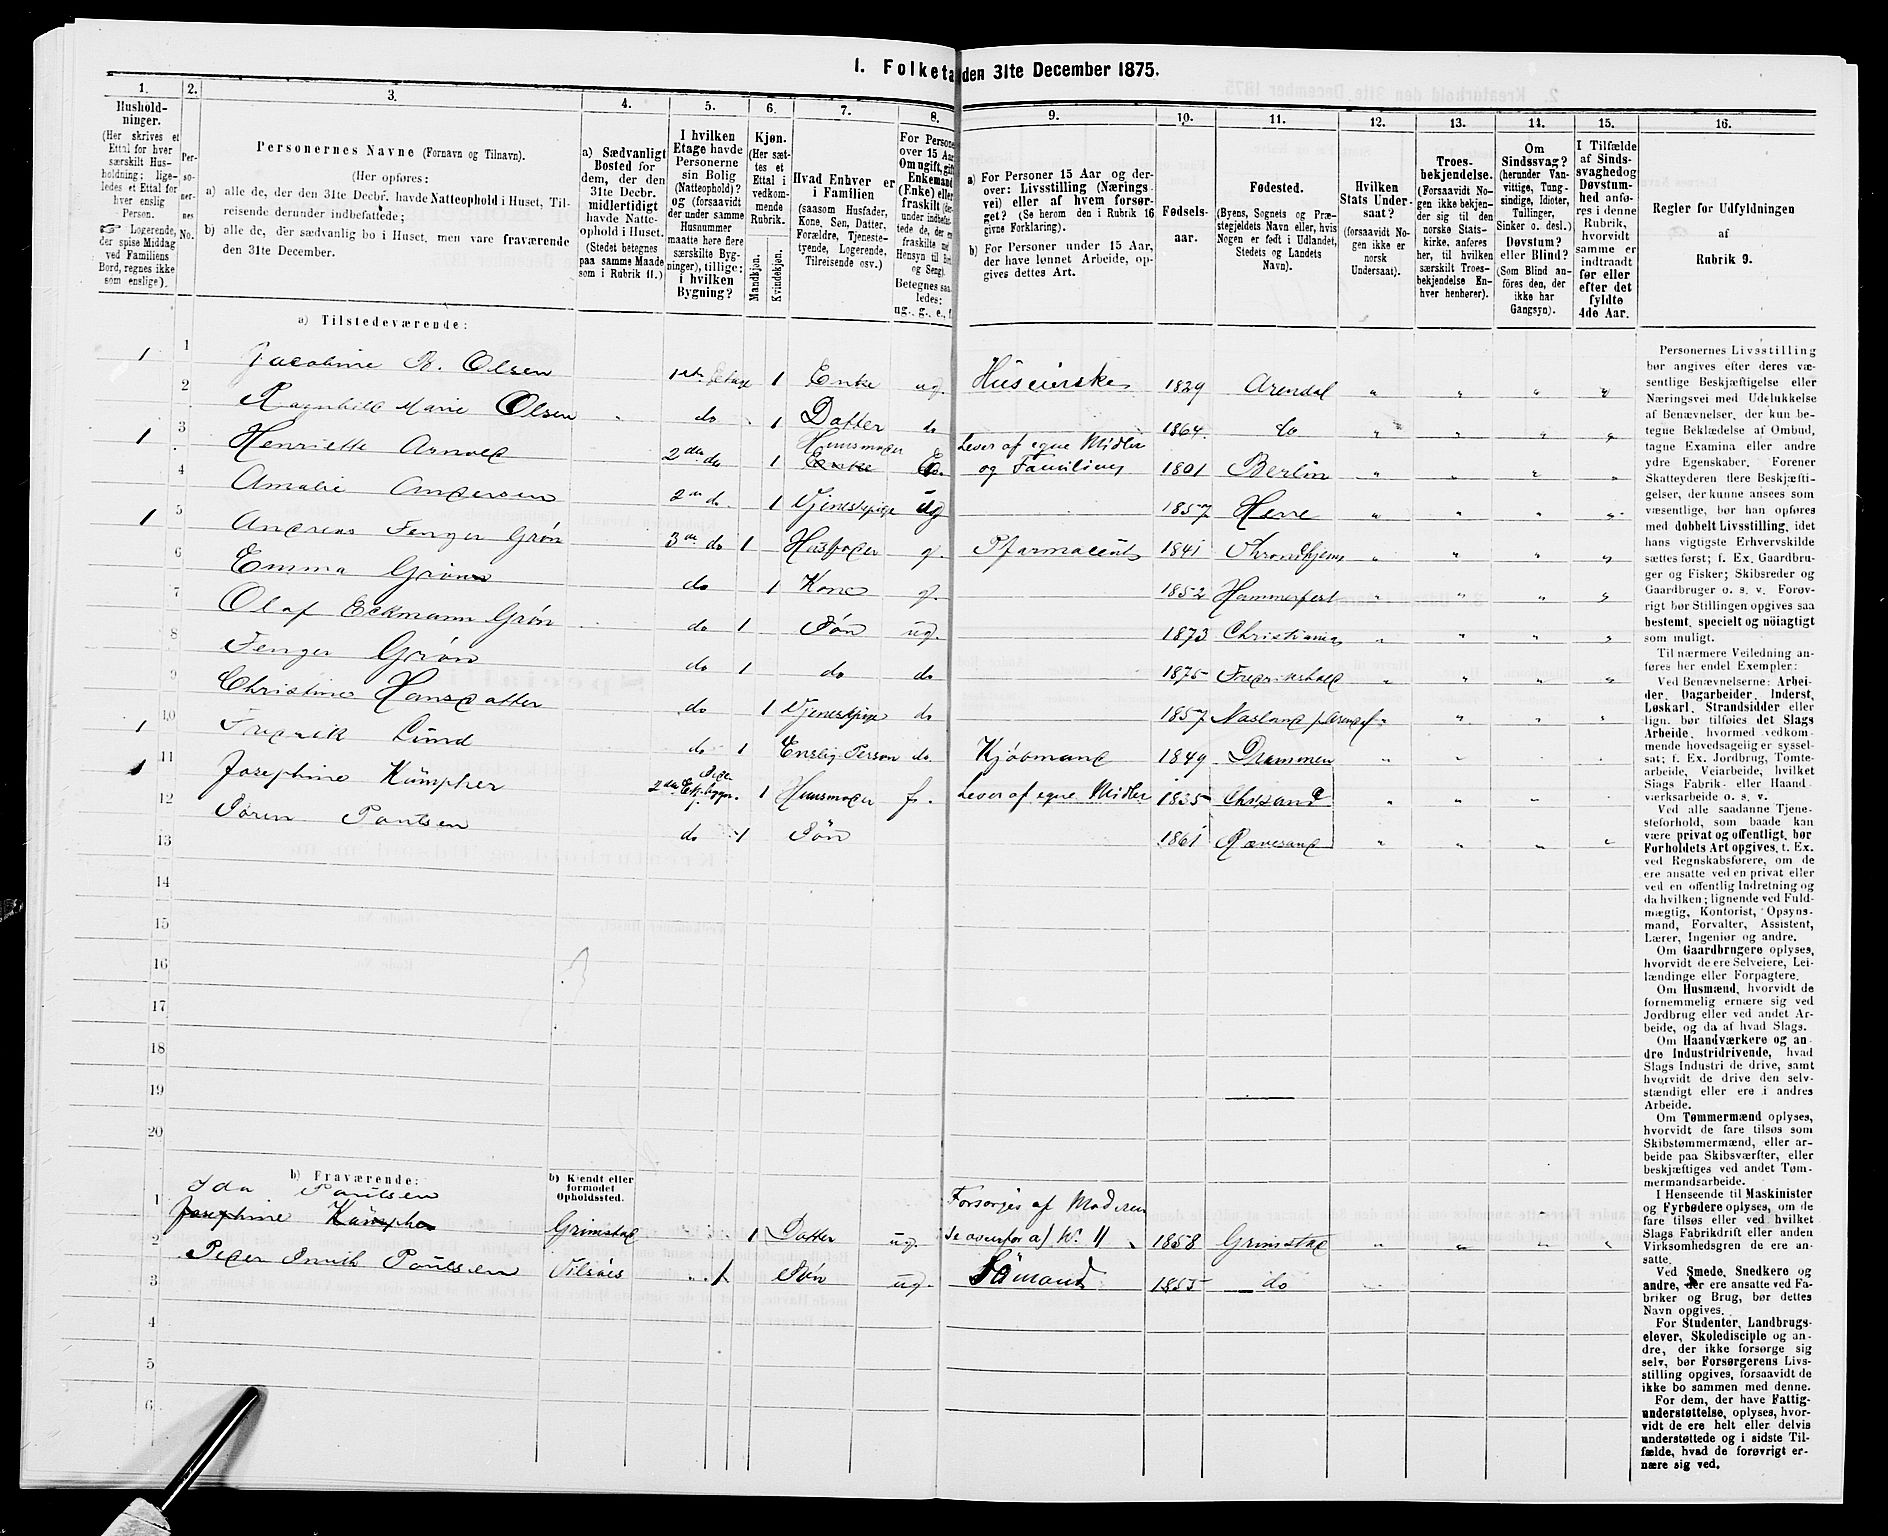 1. Folketæ den 31te December 1875.
1. 2. 3. 4. 5. 6. 7. 8. 9. 10. 11. 12. 13. 14. 15. 16.
Hushold-
ninger.
(Her skrives et
Ettal for hver
særskilt Hus-
holdning; lige-
ledes et Ettal for
hver enslig
Person.
☞ Logerende,
der spise Middag
ved Familiens
Bord, regnes ikke
som enslige).
Per-
so-
ner-
nes
No.
Personernes Navne (Fornavn og Tilnavn).
(Her opføres:
a) alle de, der den 31te Decbr. havde Natteophold i Huset, Til-
reisende derunder indbefattede;
b) alle de, der sædvanlig bo i Huset, men vare fraværende
den 31te December.
a) Sædvanligt
Bosted for
dem, der den
31te Decbr.
midlertidigt
havde Natte-
ophold i Huset.
(Stedet betegnes
paa samme Maade
som i Rubrik 11.)
I hvilken
Etage havde
Personerne
sin Bolig
(Natteophold)?
og (forsaavidt
der under samme
Husnummer
maatte høre flere
særskilte Byg-
ninger), tillige:
i hvilken
Bygning?
Kjøn.
(Her sæt-
tes et
Ettal i
vedkom-
mende
Rubrik.
Mandkjøn.
Kvindekjøn.
Hvad Enhver er
i Familien
(saasom Husfader,
Kone, Søn, Datter,
Forældre, Tjeneste-
tyende, Logerende,
Tilreisende osv.)
For Persone
over 15 Aar
Om ugift, gift
Enkemand
(Enke) eller
fraskilt (de
under indbefat-
tede de, der e
fraskilte med
Hensyn til Bo
og Seng).
Betegnes saa-
ledes:
ug., g., e., f.
a) For Personer 15 Aar og der-
over: Livsstilling (Nærings-
vei) eller af hvem forsør-
get? (Se herom den i Rubrik 16
givne Forklaring).
b) For Personer under 15 Aar,
der have lønnet Arbeide, op-
gives dettes Art.
Fødsels-
aar.
Fødested.
(Byens, Sognets og Præ-
stegjeldets Navn eller, hvis
Nogen er født i Udlandet,
Stedets og Landets
Navn).
Hvilken
Stats Under-
saat?
(forsaavidt No-
gen ikke er
norsk
Undersaat).
Troes-
bekjendelse.
(Forsaavidt No-
gen ikke bekjen-
der sig til den
norske Stats-
kirke, anføres
her, til hvilken
særskilt Troes-
bekjendelse En-
hver henhører).
Om
Sindssvag?
(herunder Van-
vittige, Tung-
sindige, Idioter,
Tullinger,
Sinker o. desl.)
Døvstum?
eller Blind?
(Som Blind an-
føres den, der
ikke har
Gangsyn).
I Tilfælde
af Sinds-
svaghed og
Døvstum-
hed anfø-
res i denne
Rubrik,
hvorvidt
samme er
indtraadt
før eller
efter det
fyldte
4de Aar.
Regler for Udfyldningen
af
Rubrik 9.
a) Tilstedeværende:
1 1 Jacobine B. Olsen 1ste Etage 1 Enke ug. Huseierske 1829 Arendal
2 Ragnhild Marie Olsen do 1 Datter do 1864 do
1 3 Henriette Arnold 2den do 1 Huusmoder Enke E. Lever af egne Midler og Familiens 1801 Berlin
4 Amalie Andersen 2den do 1 Tjenestepige ug 1857 Herre
1 5 Andreas Fenger Grøn 3de do 1 Husfader g. Pharmaceut 1841 Throndhjem
6 Emma Grøn do 1 Kone g. 1852 Hammerfest
7 Olaf Eckmann Grøn do 1 Søn ug. 1873 Christiania
8 Fenger Grøn do 1 do do 1875 Fredrikshald
9 Christine Hansdatter do 1 Tjenestepige do 1857 p. Arendal
1 10 Fredrik Lund do 1 Enslig Person do Kjøbmand 1849 Drammen
1 11 Josephine Kämpher 2den Et. Side bygn. 1 Huusmoder f. Lever af egne Midler 1835 Chrsand
12 Søren Poulsen do 1 Søn 1861 Rævesand
13
14
15
16
17
18
19
20
b) Fraværende:
b) Kjendt eller
formodet
Opholdssted.
1 Ida Poulsen
Josephine Kämpher Grimstad 1 Datter ug. Forsørges af Moderen se ovenfor a) No. 11 1858 Grimstad
2 Peder Smith Poulsen Tilsøes 1 Søn ug. Sømand 1855 do
3
4
5
6
Personernes Livsstilling
bør angives efter deres væ-
sentlige Beskjæftigelse eller
Næringsvei med Udelukkelse
af Benævnelser, der kun be-
tegne Beklædelse af Ombud,
tagne Examina eller andre
ydre Egenskaber. Forener
Skatteyderen flere Beskjæfti-
gelser, der kunne ansees som
væsentlige, bør han opføres
med dobbelt Livsstilling, idet
hans vigtigste Erhvervskilde
sættes først; f. Ex. Gaardbru-
ger og Fisker; Skibsreder og
Gaardbruger o. s. v. Forøv-
rigt bør Stillingen opgives saa
bestemt, specielt og nöiagtigt
som muligt.
Til nærmere Veiledning an-
føres her endel Exempler:
Ved Benævnelserne: Arbei-
der, Dagarbeider, Inderst,
Løskarl, Strandsidder eller
lign. bør tilføies det Slags
Arbeide, hvormed vedkom-
mende hovedsagelig er syssel-
sat; f. Ex. Jordbrug, Tomte-
arbeide, Veiarbeide, hvilket
Slags Fabrik- eller Haand-
værksarbeide o. s. v.
Ved alle saadanne Tjene-
steforhold, som baade kan
være privat og offentligt, bør
Forholdets Art opgives, t. Ex.
ved Regnskabsførere, om de
ere ansatte ved en privat eller
ved en offentlig Indretning og
da hvilken; lignende ved Fuld-
mægtig, Kontorist, Opsyns-
mand, Forvalter, Assistent,
Lærer, Ingeniør og andre.
Om Gaardbrugere oplyses,
hvorvidt de ere Selveiere, Lei-
lændinge eller Forpagtere.
Om Husmænd, hvorvidt de
fornemmelig ernære sig ved
Jordbrug eller ved andet Ar-
beide, og da af hvad Slags.
Om Haandværkere og an-
dre Industridrivende, hvad
Slags Industri de drive, samt
hvorvidt de drive den selv-
stændigt eller ere i andres
Arbeide.
Om Tømmermænd oplyses,
hvorvidt de fare tilsøs som
Skibstømmermænd, eller ar-
beide paa Skibsværfter, eller
beskjæftiges ved andet Tøm-
mermandsarbeide.
I Henseende til Maskinister
og Fyrbødere oplyses, om de
fare tilsøs eller ved hvilket
Slags Fabrikdrift eller anden
Virksomhedsgren de ere an-
satte.
Ved Smede, Snedkere og
andre, der ere ansatte ved Fa-
briker og Brug, bør dettes
Navn opgives.
For Studenter, Landbrugs-
elever, Skoledisciple og an-
dre, der ikke forsørge sig
selv, bør Forsørgerens Livs-
stilling opgives, forsaavidt de
ikke bo sammen med denne.
For dem, der have Fattig-
understøttelse, oplyses, hvor-
vidt de ere helt eller delvis
understøttede og i sidste Til-
fælde, hvad de forøvrigt er-
nære sig ved.